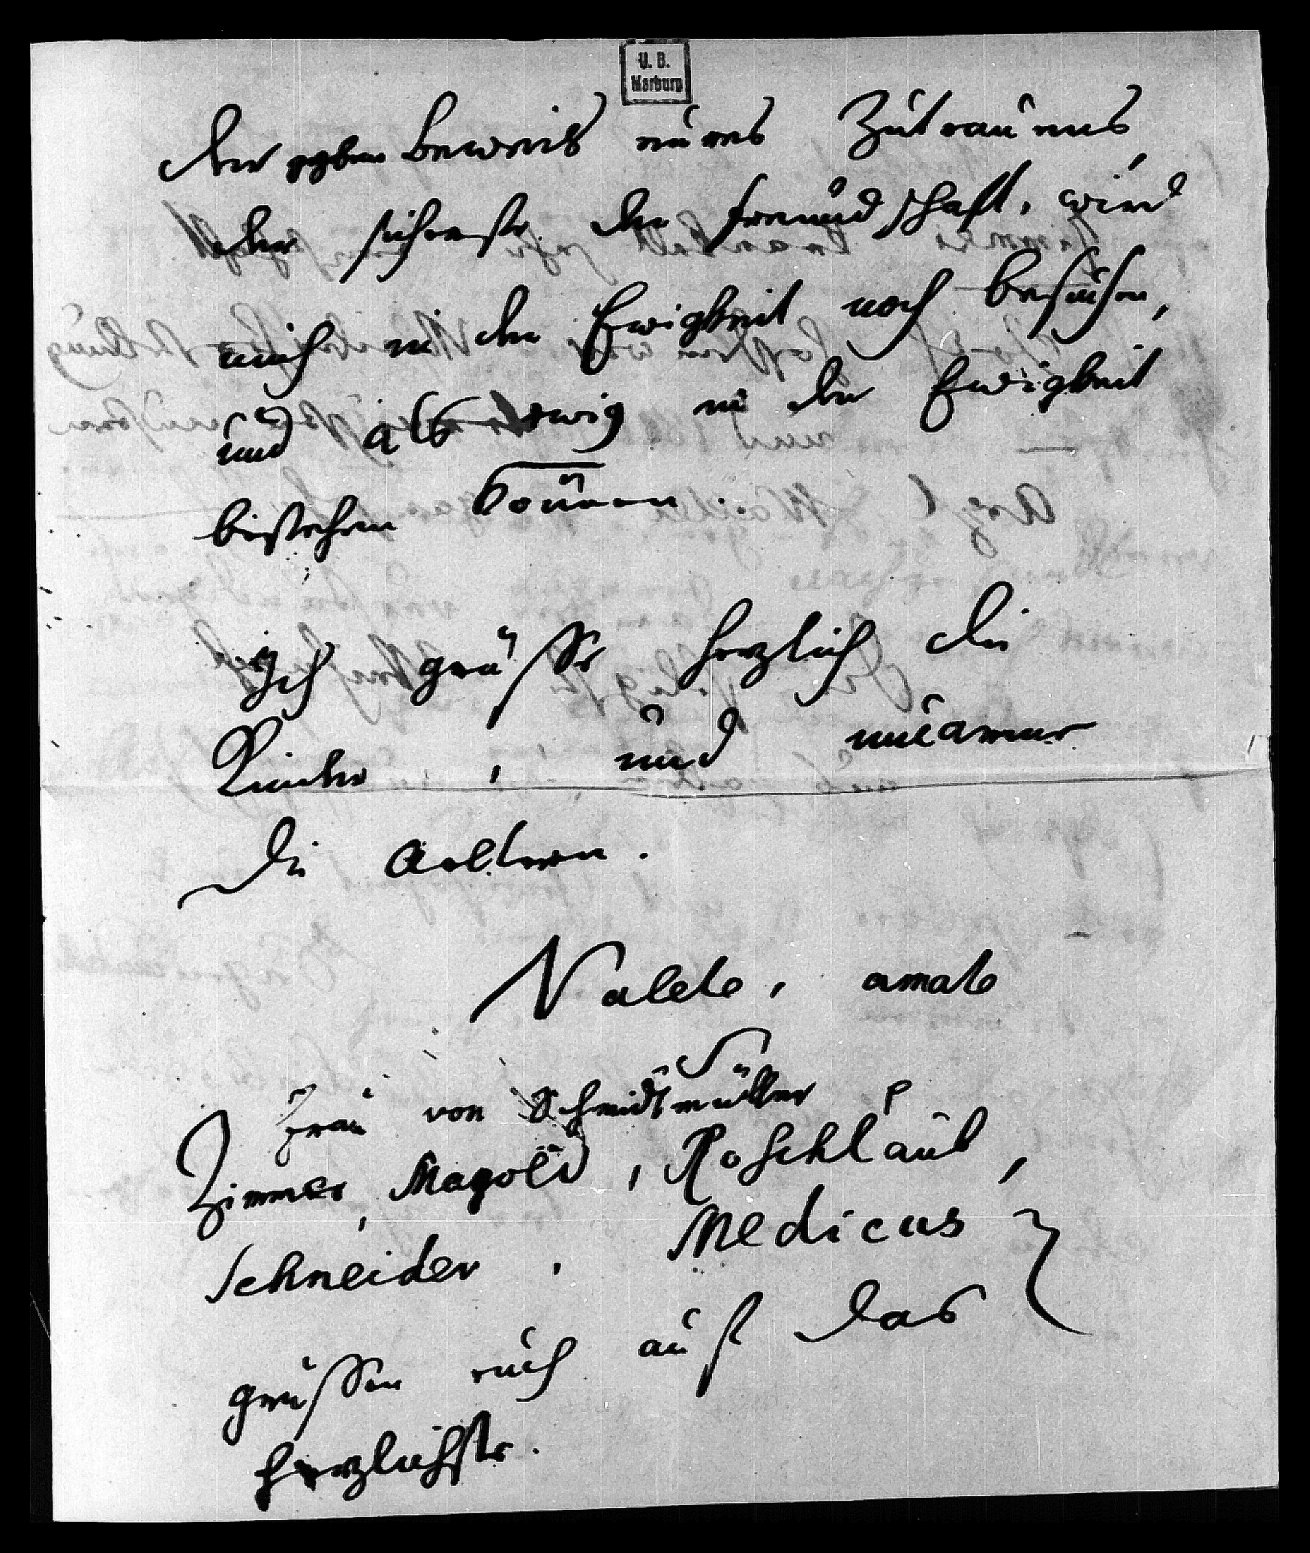 U. B.
Marburg
der Beweis eures Zutrauens,
der sicherste der Freundschaft, wird
mich in der Ewigkeit noch besuchen,
und als ewig in der Ewigkeit
bestehen können.
Ich grüsse herzlich die
Kinder, und umarme
die Aeltern.
Valete, amate
Frau von Schmidtmüller
Zimmer, Magold, Röschlaub,
Schneider, Medicus
grüssen euch auf das
herzlichste.